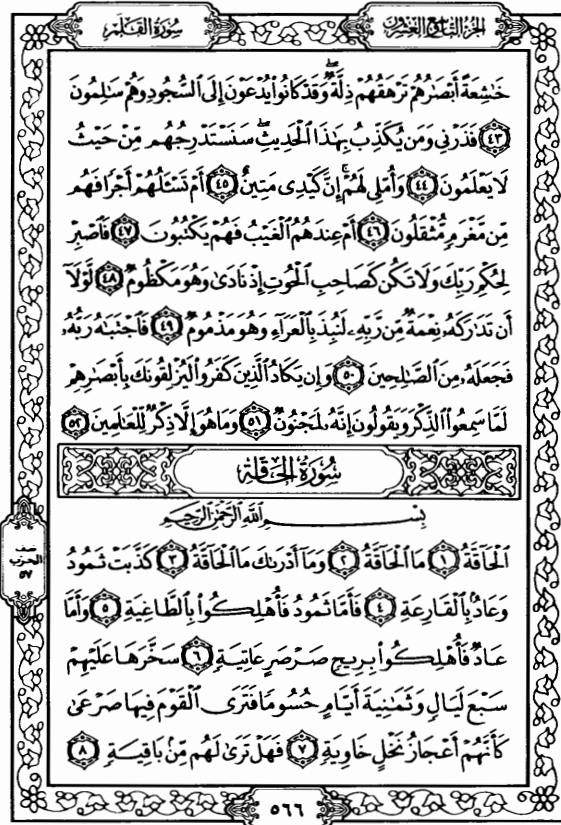 الجزء التاسع والعشرون
سورة القلم
خَٰشِعَةً أَبْصَٰرُهُمْ تَرْهَقُهُمْ ذِلَّةٌۖ وَقَدْ كَانُوا۟ يُدْعَوْنَ إِلَى ٱلسُّجُودِ وَهُمْ سَٰلِمُونَ
﴿٤٣﴾ فَذَرْنِى وَمَن يُكَذِّبُ بِهَٰذَا ٱلْحَدِيثِۖ سَنَسْتَدْرِجُهُم مِّنْ حَيْثُ
لَا يَعْلَمُونَ ﴿٤٤﴾ وَأُمْلِى لَهُمْۚ إِنَّ كَيْدِى مَتِينٌ ﴿٤٥﴾ أَمْ تَسْـَٔلُهُمْ أَجْرًا فَهُم
مِّن مَّغْرَمٍ مُّثْقَلُونَ ﴿٤٦﴾ أَمْ عِندَهُمُ ٱلْغَيْبُ فَهُمْ يَكْتُبُونَ ﴿٤٧﴾ فَٱصْبِرْ
لِحُكْمِ رَبِّكَ وَلَا تَكُن كَصَاحِبِ ٱلْحُوتِ إِذْ نَادَىٰ وَهُوَ مَكْظُومٌ ﴿٤٨﴾ لَّوْلَآ
أَن تَدَٰرَكَهُۥ نِعْمَةٌ مِّن رَّبِّهِۦ لَنُبِذَ بِٱلْعَرَآءِ وَهُوَ مَذْمُومٌ ﴿٤٩﴾ فَٱجْتَبَٰهُ رَبُّهُۥ
فَجَعَلَهُۥ مِنَ ٱلصَّٰلِحِينَ ﴿٥٠﴾ وَإِن يَكَادُ ٱلَّذِينَ كَفَرُوا۟ لَيُزْلِقُونَكَ بِأَبْصَٰرِهِمْ
لَمَّا سَمِعُوا۟ ٱلذِّكْرَ وَيَقُولُونَ إِنَّهُۥ لَمَجْنُونٌ ﴿٥١﴾ وَمَا هُوَ إِلَّا ذِكْرٌ لِّلْعَٰلَمِينَ ﴿٥٢﴾
سُورَةُ الْحَاقَّةِ
بِسْمِ ٱللَّهِ ٱلرَّحْمَٰنِ ٱلرَّحِيمِ
ٱلْحَآقَّةُ ﴿١﴾ مَا ٱلْحَآقَّةُ ﴿٢﴾ وَمَآ أَدْرَىٰكَ مَا ٱلْحَآقَّةُ ﴿٣﴾ كَذَّبَتْ ثَمُودُ
وَعَادٌۢ بِٱلْقَارِعَةِ ﴿٤﴾ فَأَمَّا ثَمُودُ فَأُهْلِكُوا۟ بِٱلطَّاغِيَةِ ﴿٥﴾ وَأَمَّا
عَادٌ فَأُهْلِكُوا۟ بِرِيحٍ صَرْصَرٍ عَاتِيَةٍ ﴿٦﴾ سَخَّرَهَا عَلَيْهِمْ
سَبْعَ لَيَالٍ وَثَمَٰنِيَةَ أَيَّامٍ حُسُومًا فَتَرَى ٱلْقَوْمَ فِيهَا صَرْعَىٰ
كَأَنَّهُمْ أَعْجَازُ نَخْلٍ خَاوِيَةٍ ﴿٧﴾ فَهَلْ تَرَىٰ لَهُم مِّنۢ بَاقِيَةٍ ﴿٨﴾
نصف
الحزب
٥٧
٥٦٦